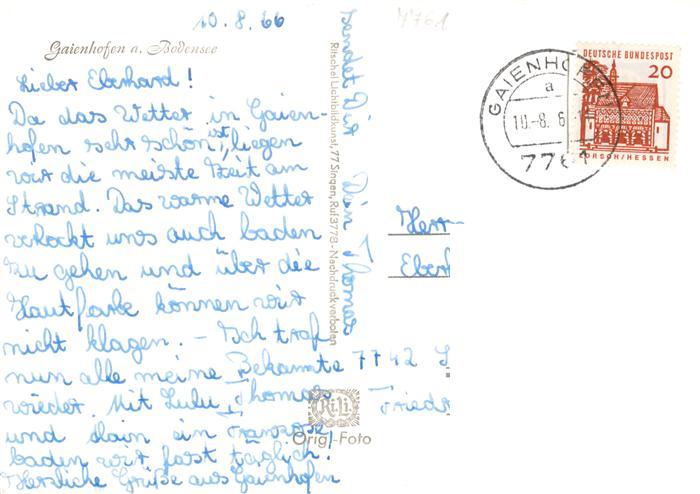 10.8.66
4761
Gaienhofen a. Bodensee
Lieber Eberhard!
Da das Wetter in Gaien-
hofen sehr schön ist, liegen
wir die meiste Zeit am
Strand. Das warme Wetter
verlockt uns auch baden
zu gehen und über die
Hautfarbe können wir
nicht klagen. - Ich traf
nun alle meine Bekannte
wieder. Mit Lulu, Thomas
und Alain ein Franzose,
baden wir fast täglich!
Herzliche Grüße aus Gaienhofen
sendet Dir Dein Thomas
Ritschel Lichtbildkunst, 77 Singen, Ruf 3778 - Nachdruck verboten
Ri.Li.
Orig.-Foto
GAIENHOFEN
a
10.-8. 6
776
DEUTSCHE BUNDESPOST
20
LORSCH/HESSEN
Herr
Eber
7742 S
Fried